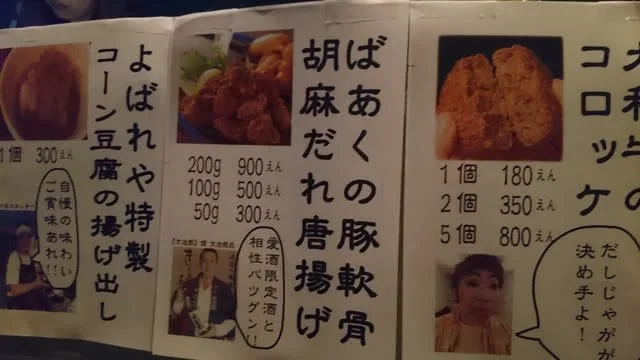 大和牛の
コロッケ
1個 180えん
2個 350えん
5個 800えん
だしじゃがが
決め手よ!
ばあくの豚軟骨
胡麻だれ唐揚げ
200g 900えん
100g 500えん
50g 300えん
愛酒限定酒と
相性バツグン!!
よばれや特製
コーン豆腐の揚げ出し
1個 300えん
自慢の味わい
ご賞味あれ!!